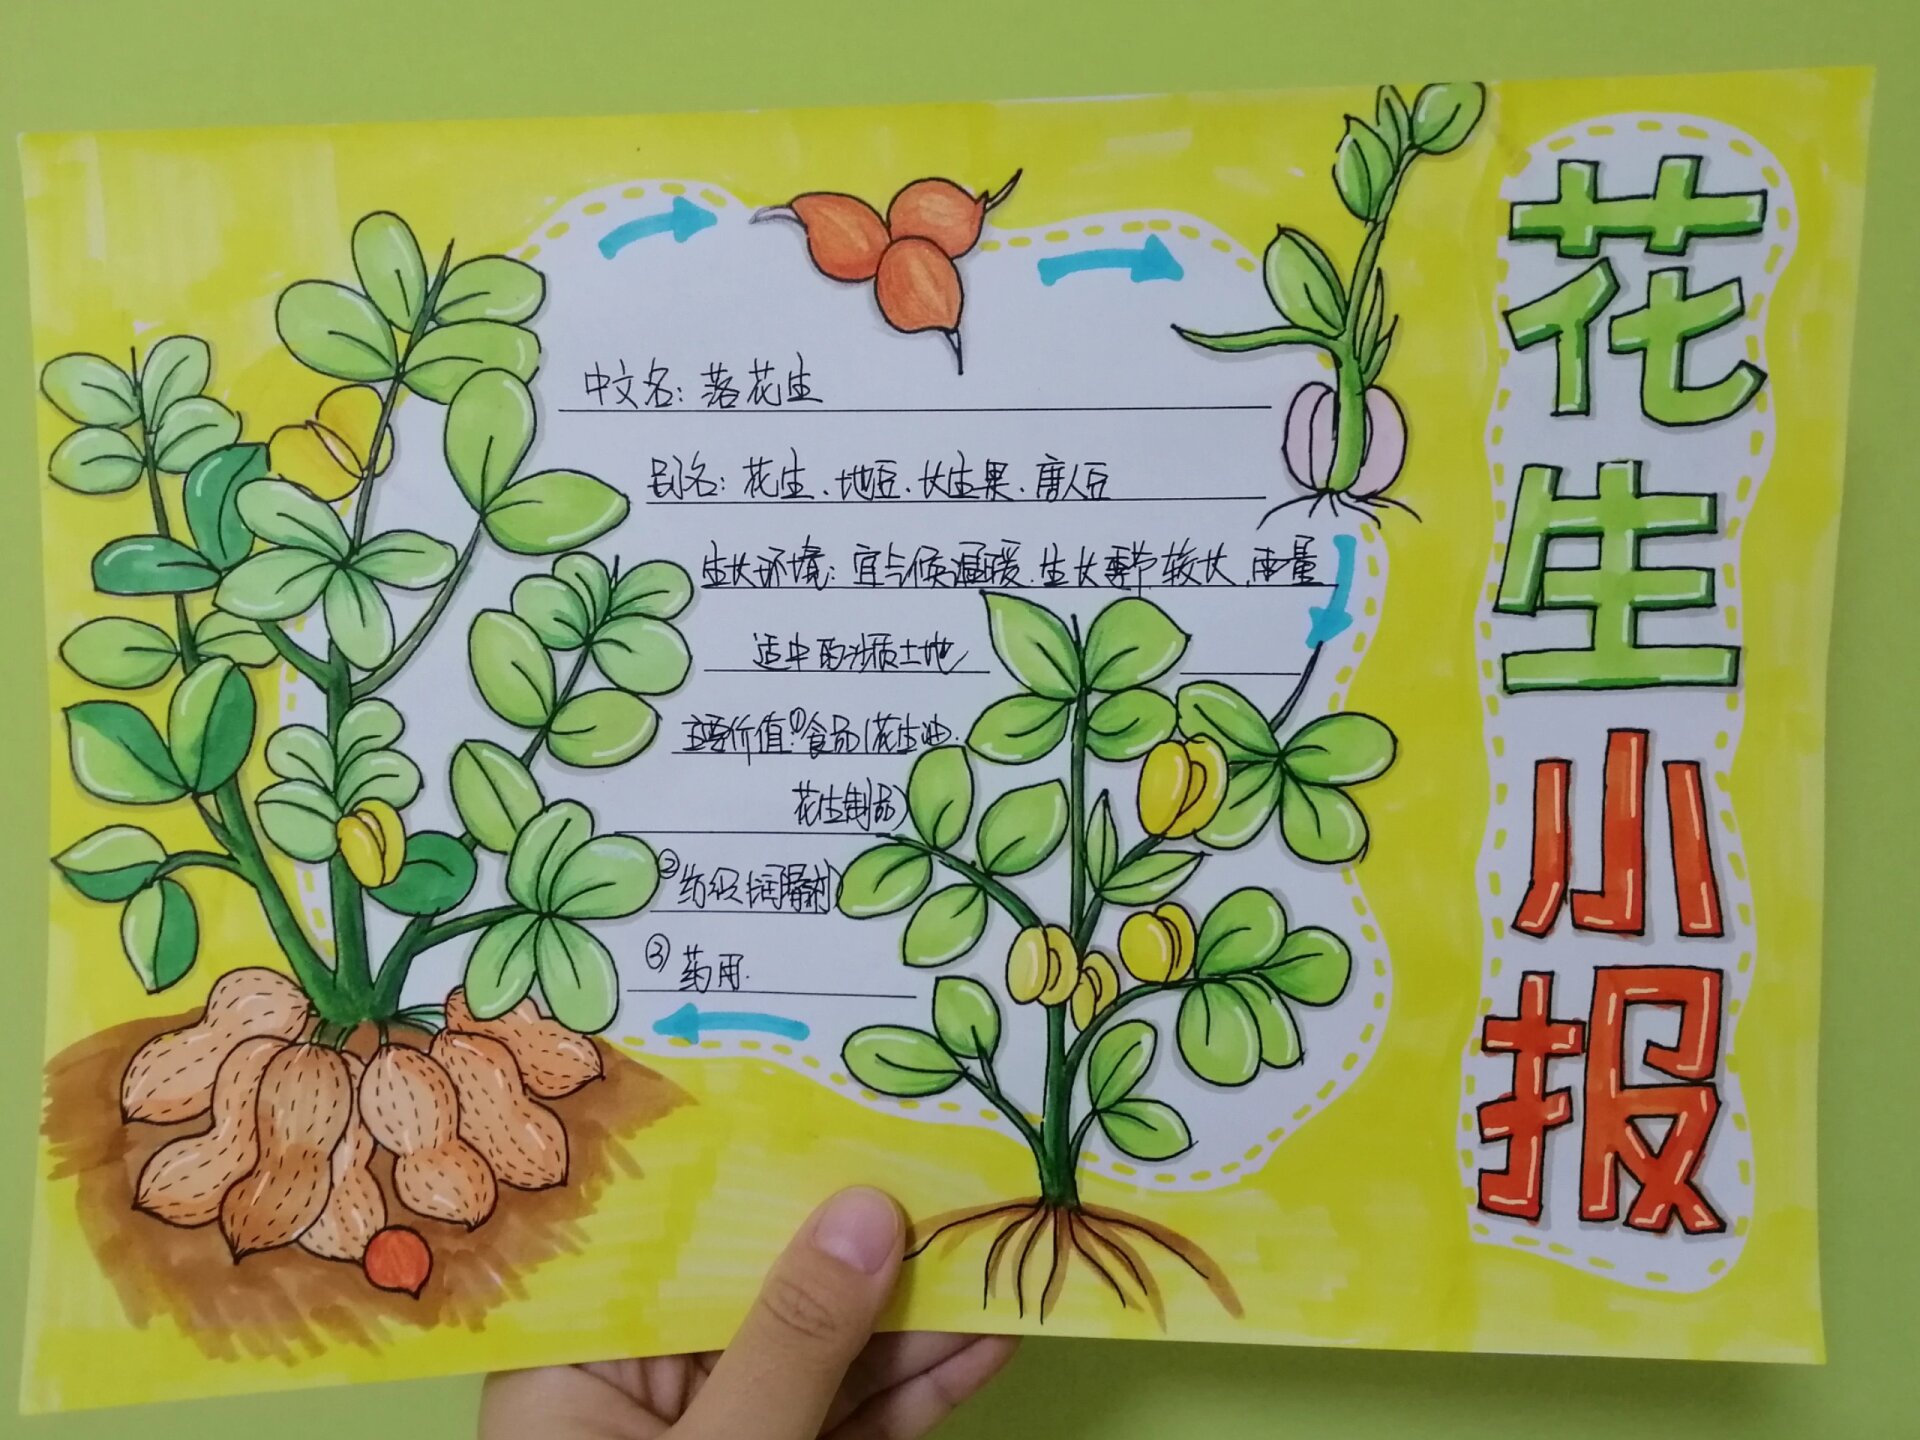 花生小报
中文名：落花生
别名：花生、地豆、长生果、唐人豆
生长环境：宜气候温暖、生长季节较长、雨量
适中的沙质土地
主要价值：①食品（花生油、
花生制品）
②纺织（润滑剂）
③药用.